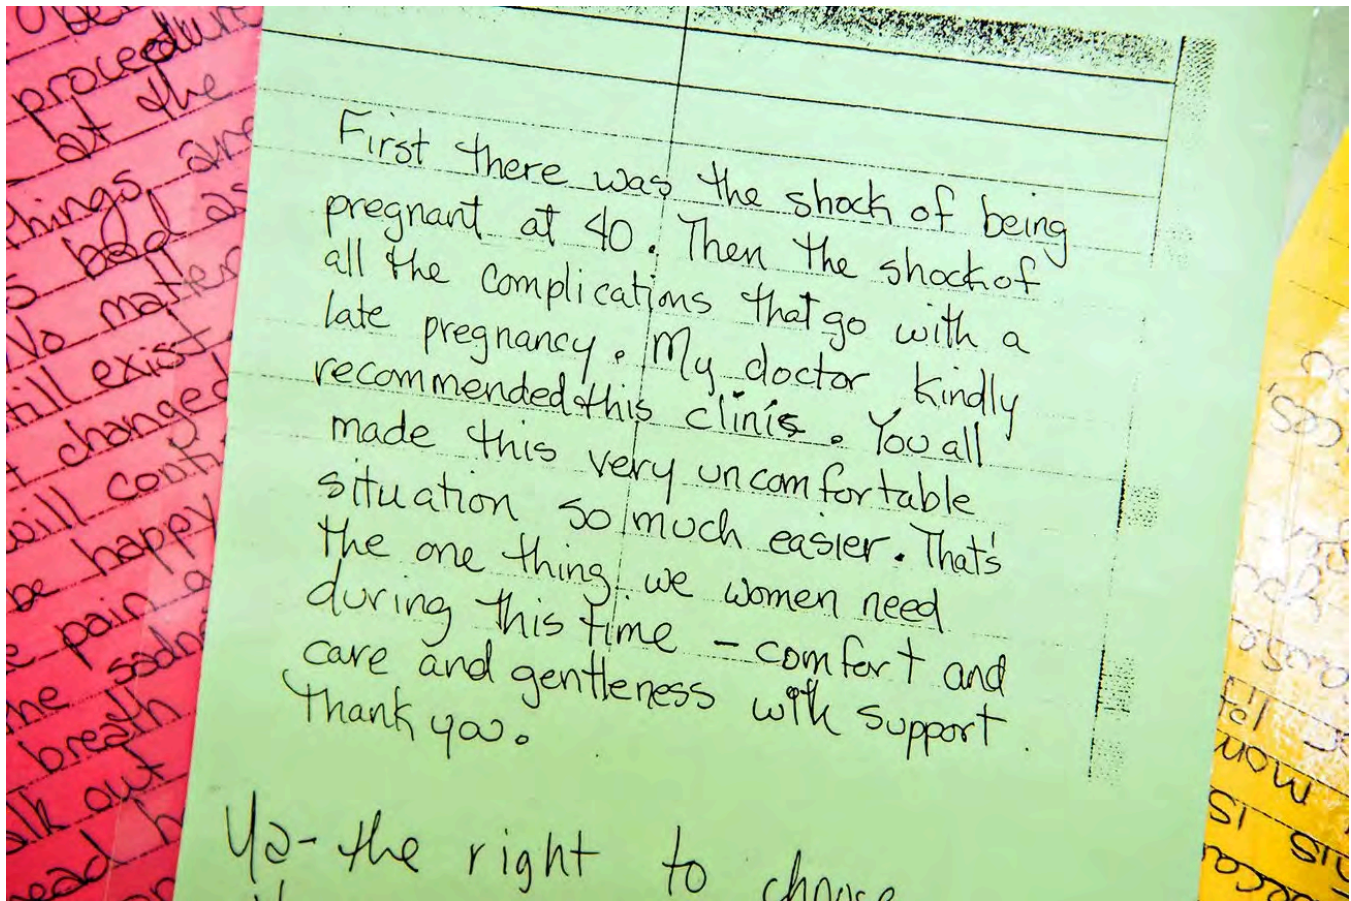 procedure
at the
things are
bad as
No matter
still exist
changed
will
be happy
pain
the
breath
out
First there was the shock of being
pregnant at 40. Then the shock of
all the complications that go with a
late pregnancy. My doctor kindly
recommended this clinic. You all
made this very uncomfortable
situation so much easier. That's
the one thing we women need
during this time - comfort and
care and gentleness with support.
Thank you.
Ya- the right to choose
mom
is